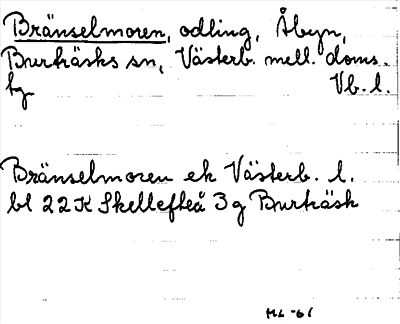 Bränselmoren, odling, Åbyn,
Burträsks sn, Västerb. mell. doms.
hg. Vb. l.
Bränselmoren ek Västerb. l.
bl 22K Skellefteå 3g Burträsk